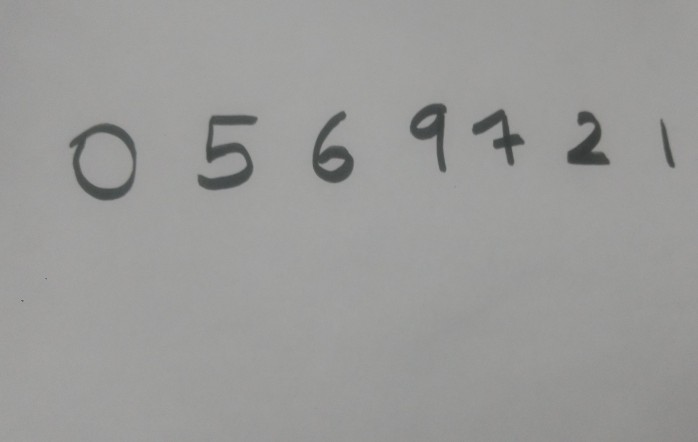 0 5 6 9 7 2 1